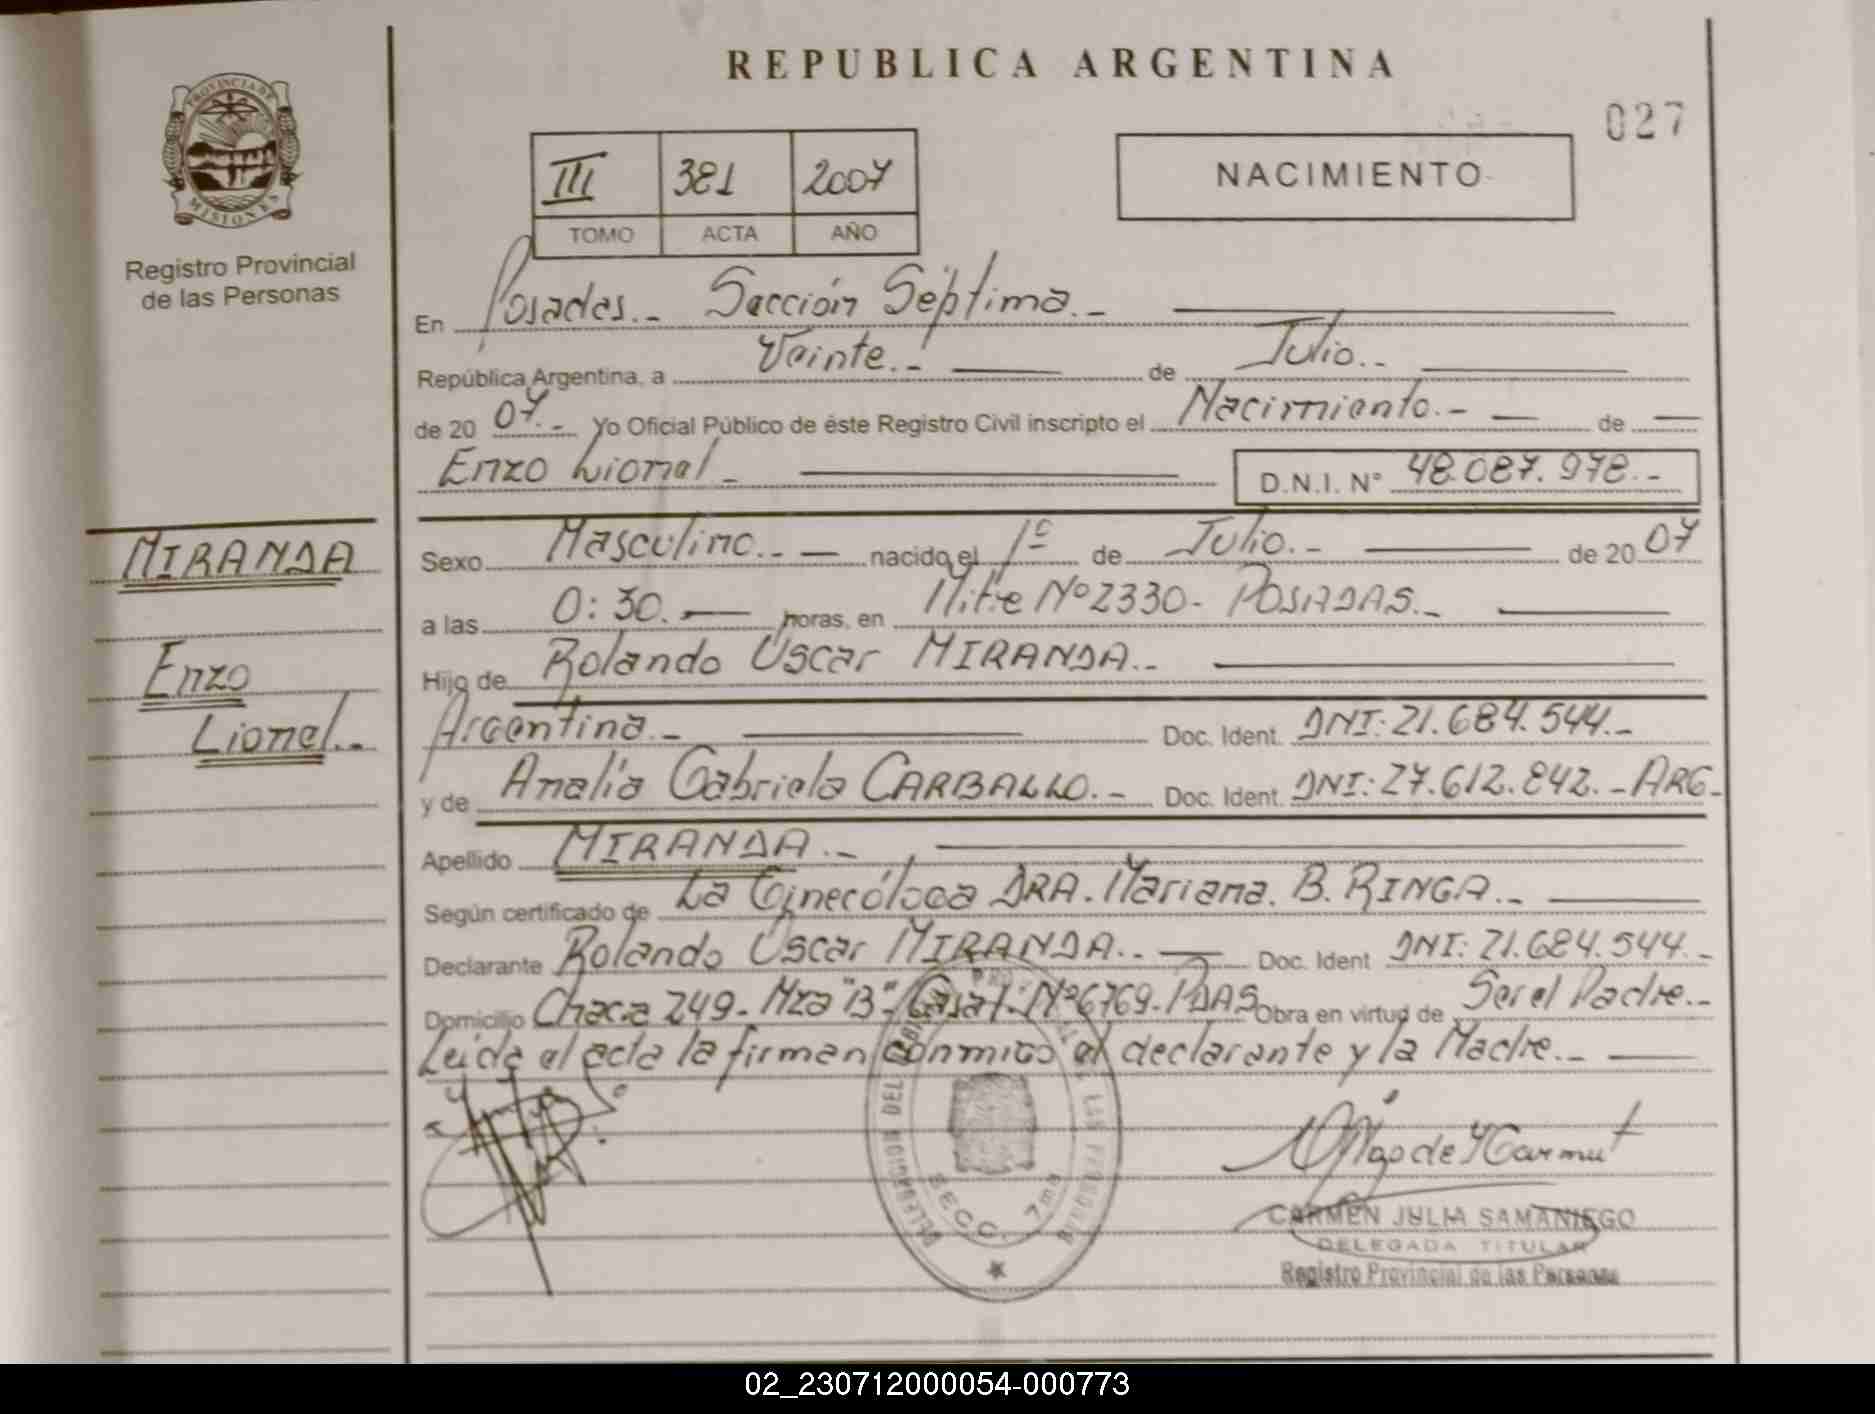 REPUBLICA ARGENTINA
027
PROVINCIA DE
MISIONES
Registro Provincial
de las Personas
III 381 2007
TOMO ACTA AÑO
NACIMIENTO
En Posadas.- Sección Séptima.-
República Argentina, a Veinte.- de Julio.-
de 20 07.- Yo Oficial Público de éste Registro Civil inscripto el Nacimiento.- de
Enzo Lionel.- D.N.I. N° 48.087.978.-
MIRANDA
Enzo
Lionel.-
Sexo Masculino.- nacido el 1º de Julio.- de 20 07
a las 0:30.- horas, en Mitre Nº 2330- POSADAS.-
Hijo de Rolando Oscar MIRANDA.-
Argentina.- Doc. Ident. DNI: 21.684.544.-
y de Analía Gabriela CARBALLO.- Doc. Ident. DNI: 27.612.842.-ARG-
Apellido MIRANDA.-
Según certificado de La Ginecóloga DRA. Mariana. B. RINGA.-
Declarante Rolando Oscar MIRANDA.- Doc. Ident DNI: 21.684.544.-
Domicilio Chacra 249- Mza "B"- Casa Nº 6769- PDAS Obra en virtud de Ser el Padre.-
Leída el acta la firman conmigo el declarante y la Madre.-
SECC. 7ma
CARMEN JULIA SAMANIEGO
DELEGADA TITULAR
Registro Provincial de las Personas
02_230712000054-000773